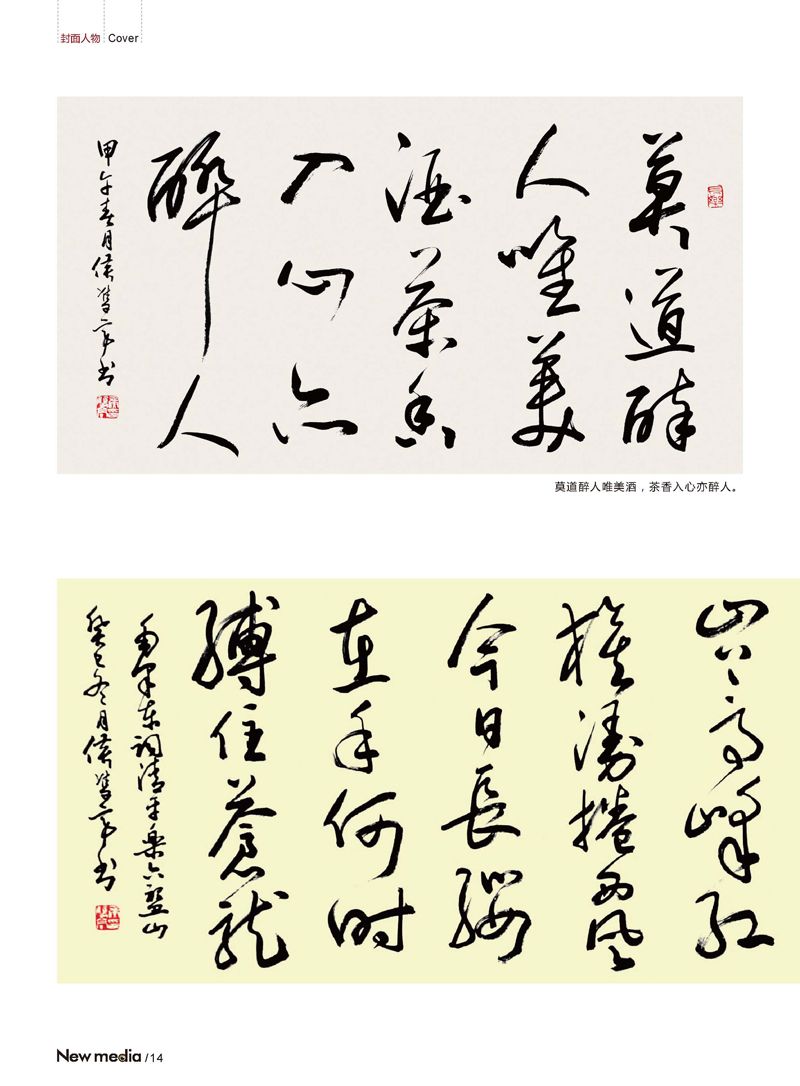 封面人物 Cover
莫道醉
人唯美
酒茶香
入心亦
醉人
甲午春月侯 书
莫道醉人唯美酒，茶香入心亦醉人。
山上高峰红
旗漫捲西风
今日長纓
在手何时
縛住蒼龍
毛泽东词清平樂六盘山
癸巳冬月侯 书
New media /14